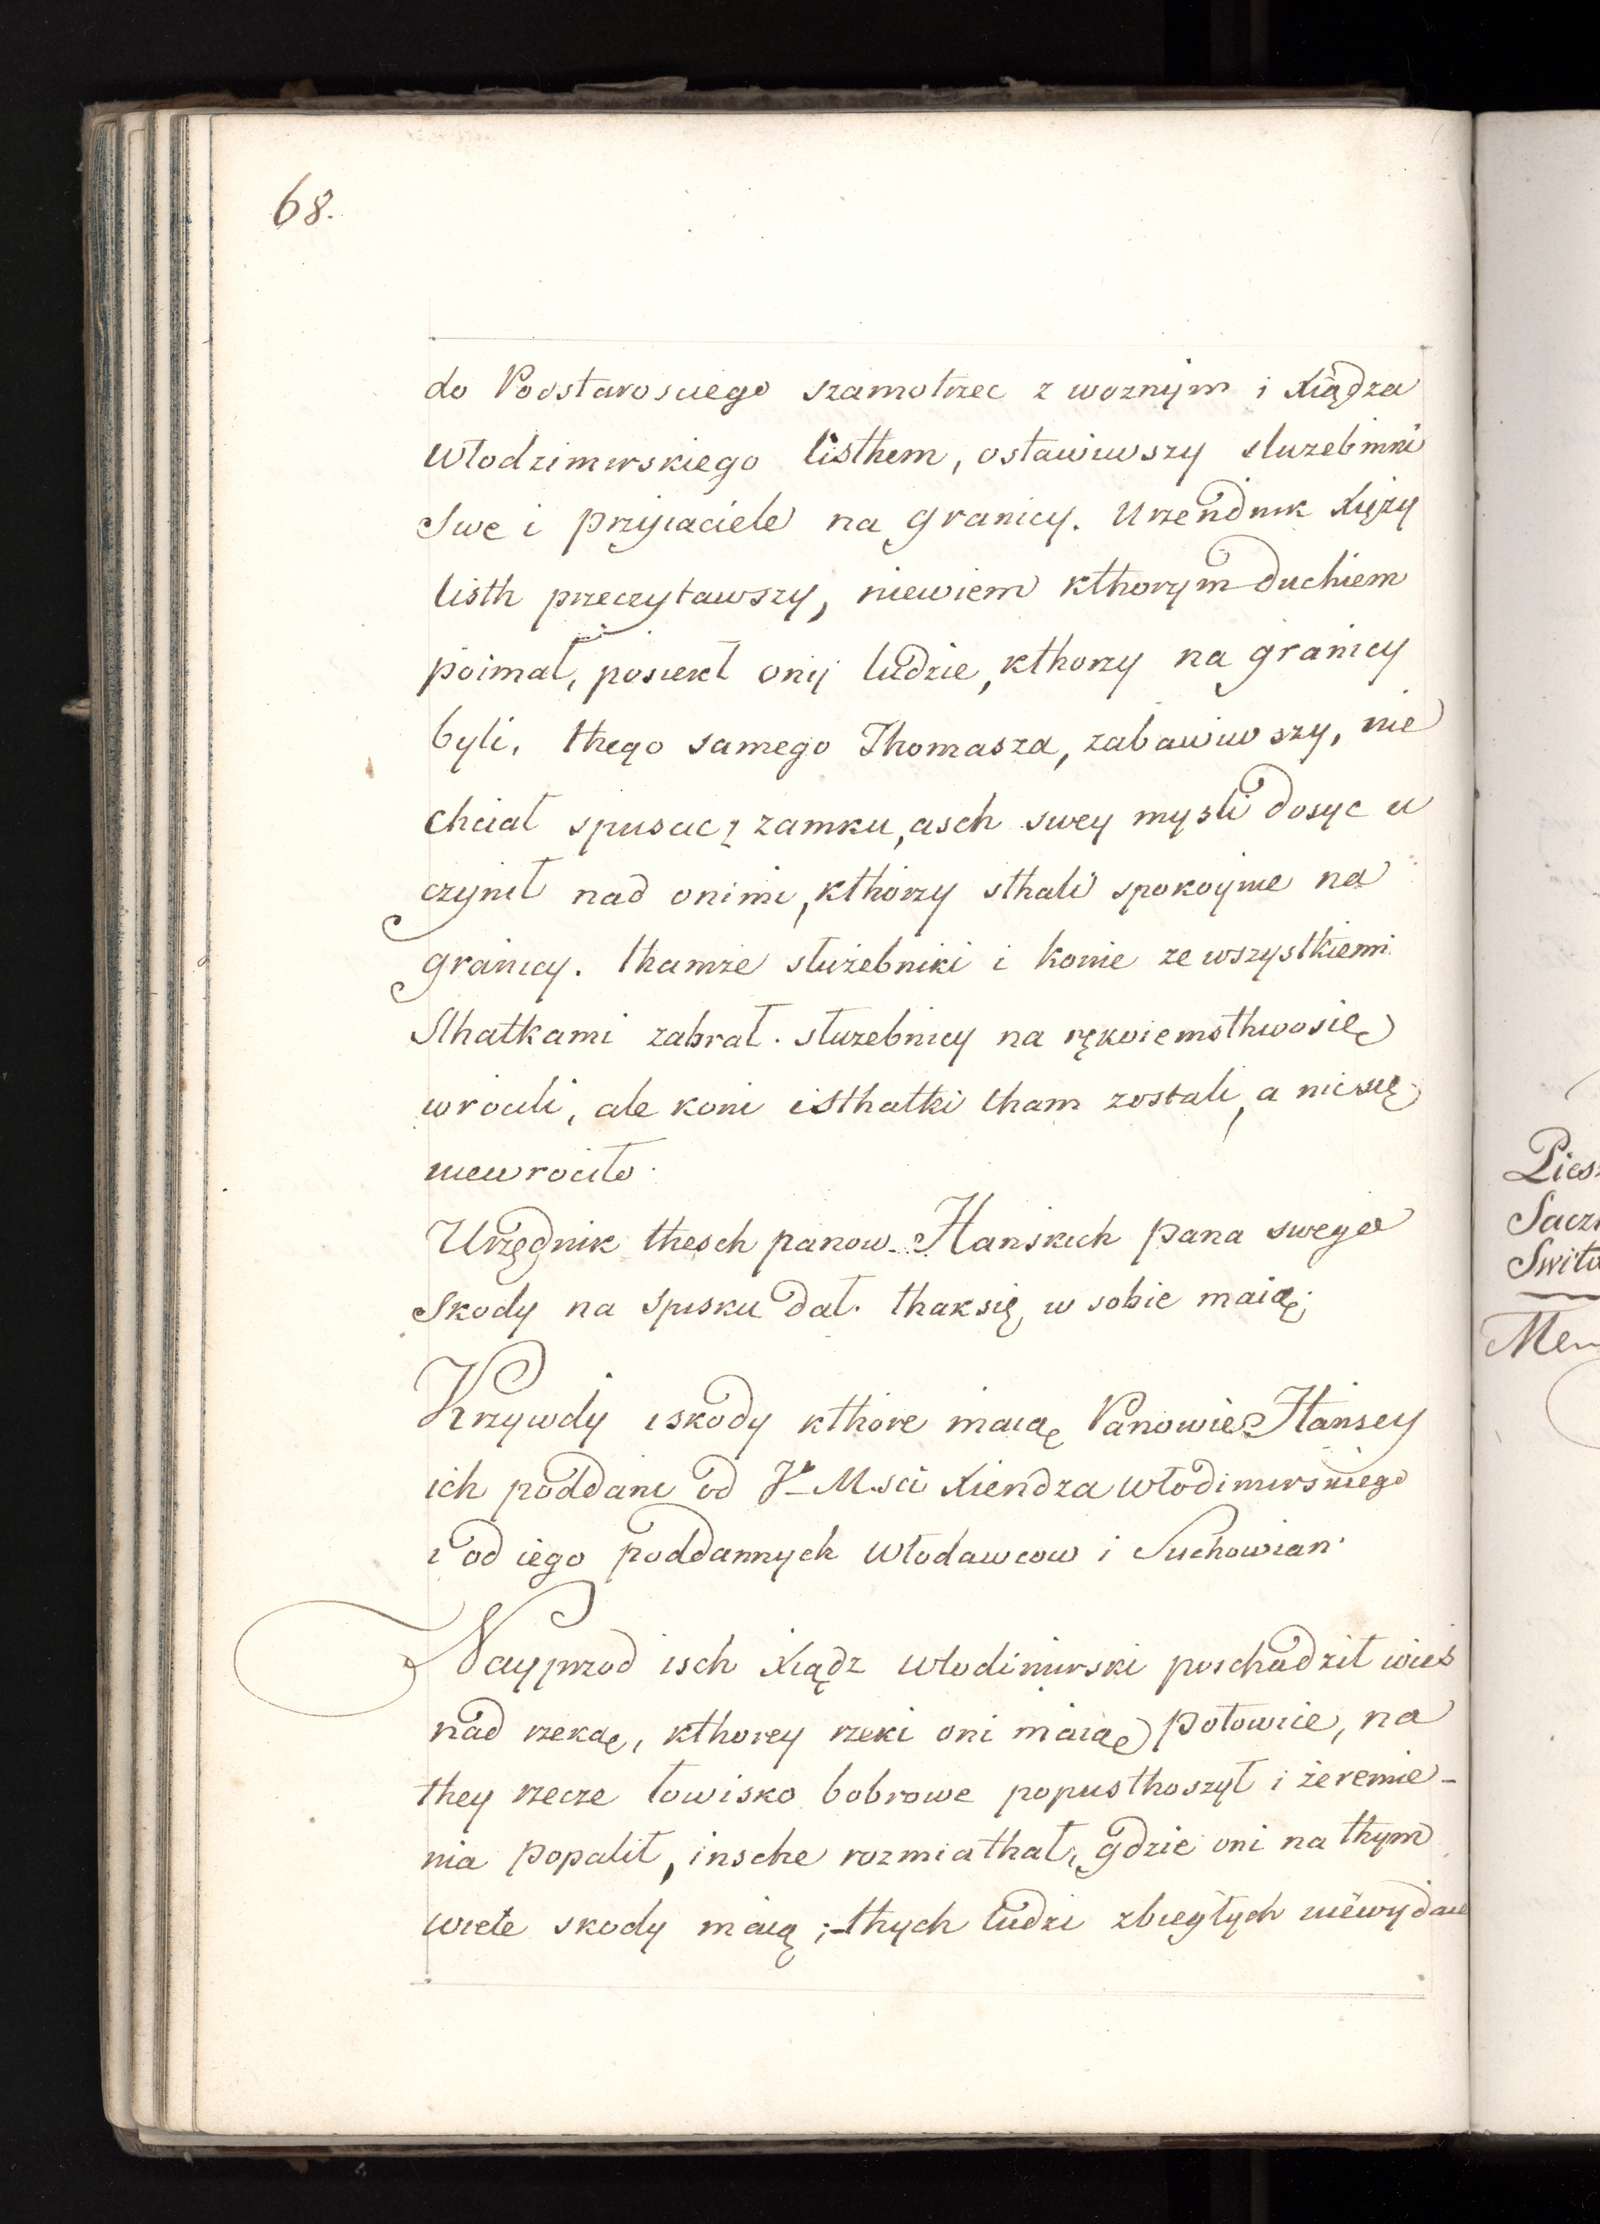 68.
do Podstarosciego szamotrzec z woznym i Xiądza
Włodzimirskiego listhem, ostawiwszy sluzebniki
Swe i przyiaciele na granicy. Urzendnik Xięży
listh przeczytawszy, niewiem kthorym duchiem
poimał, posiekł onij ludzie, kthorzy na granicy
byli, thego samego Thomasza, zabawiwszy, nie
chciał spuscic z zamku, asch swey mysli dosyc u
czynił nad onimi, kthorzy sthali spokoynie na
granicy. thamze służebniki i konie ze wszystkiemi
Sthatkami zabrał. służebnicy na rękoiemsthwosię
wrócili, ale koni isthatki tham zostali, a nic się
niewrociło.
Urzędnik thesch panow Hanskich pana swego
Skody na spisku dał. thaksię w sobie maią;
Krzywdy i skody kthore maią Panowie Hanscy
ich poddani od Je M.sci Xiendza Włodimirskiego
i od iego poddannych Włodawcow i Suchowian.
Nayprzod isch Xiądz Włodimirski poschadził wieś
nad rzeką, kthorey rzeki oni maią połowicę, na
they rzecze łowisko bobrowe popusthoszył i żeremie-
nia popalił, insche rozmiathał, gdzie oni na thym
wiele skody maią; thych ludzi zbiegłych niewydaie
Pies
Sacz
Swito
Mem